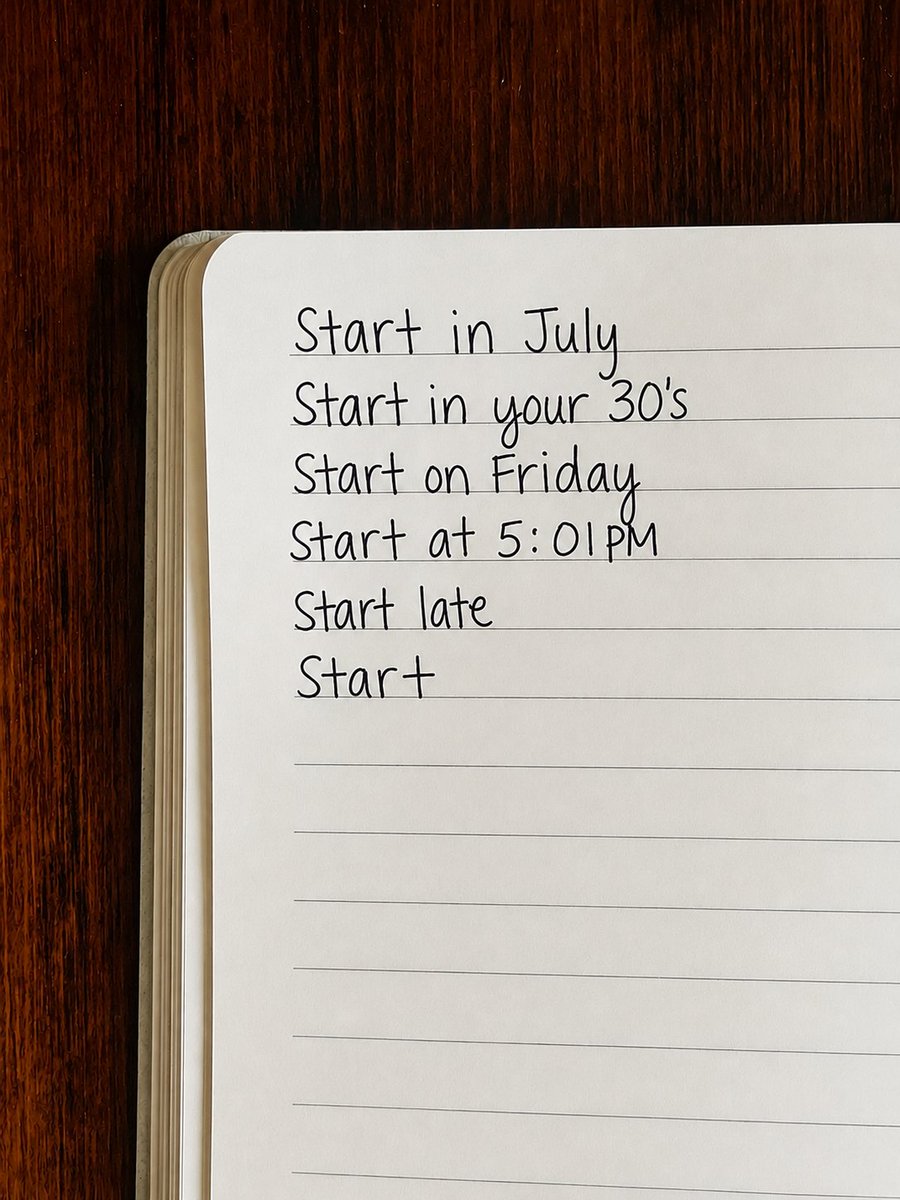 Start in July
Start in your 30's
Start on Friday
Start at 5:01PM
Start late
Start